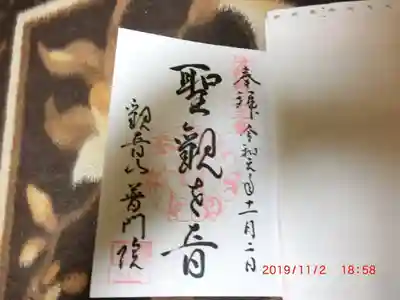 奉拝 令和元年十一月二日
聖觀世音
觀音山 普門院
2019/11/2 18:58